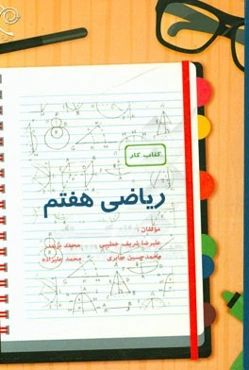 کتاب کار
ریاضی هفتم
مؤلفان:
علیرضا شریف خطیبی محمد
محمدحسین صابری محمد علیزاده